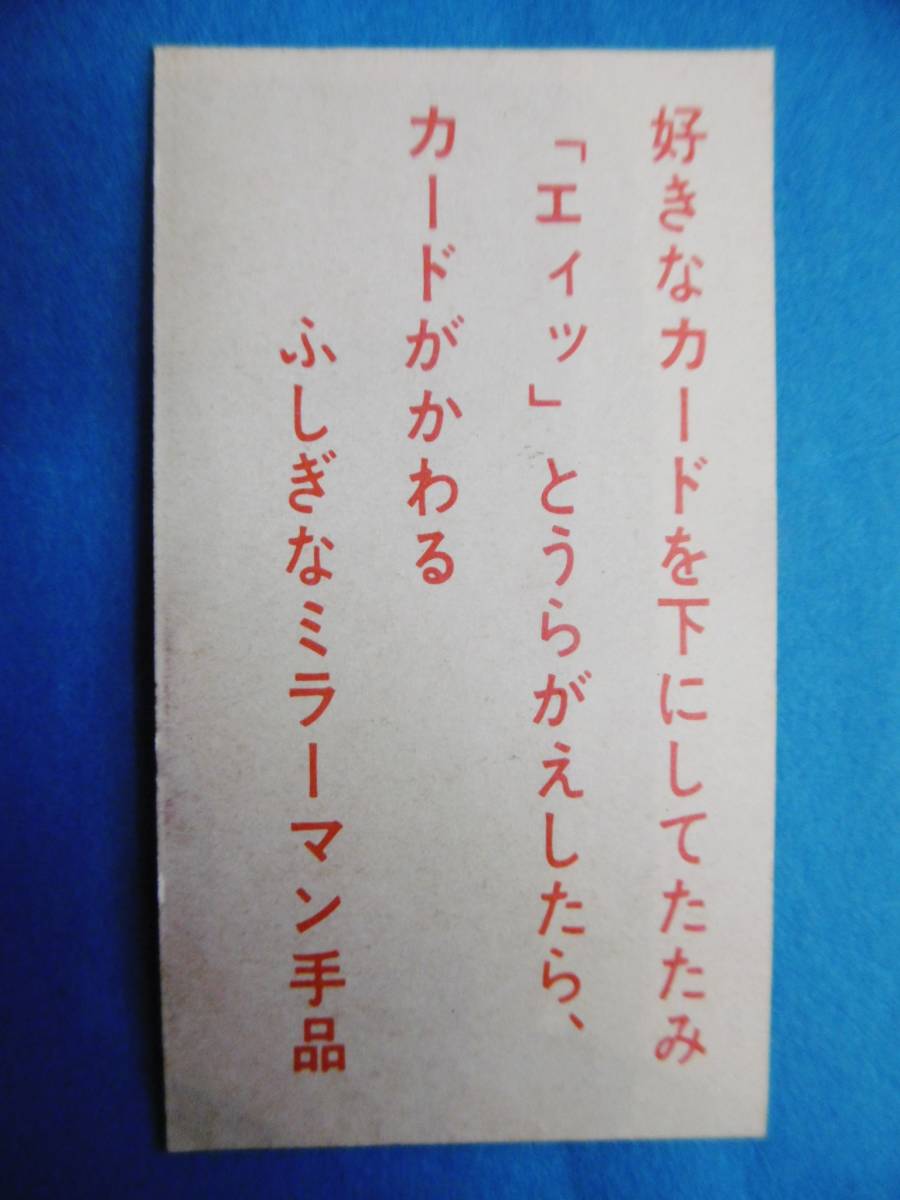 好きなカードを下にしてたたみ
「エィッ」とうらがえしたら、
カードがかわる
ふしぎなミラーマン手品